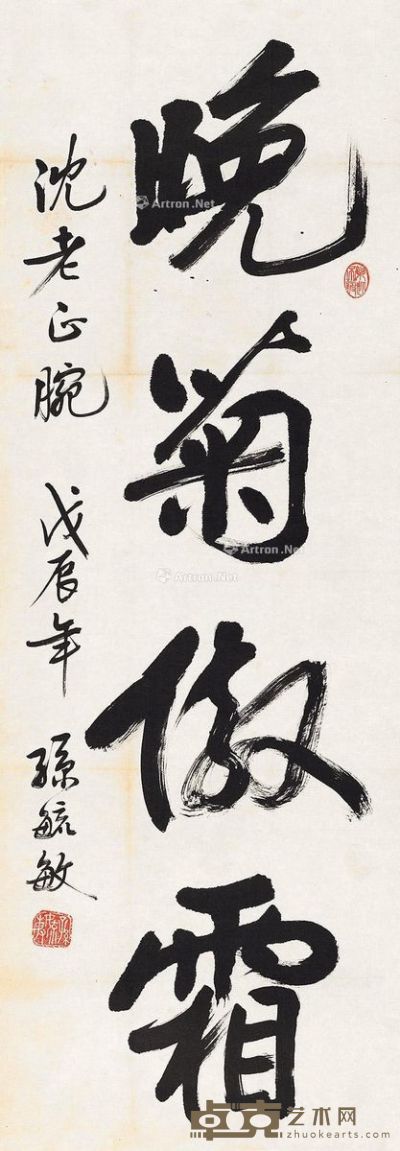 晚菊傲霜
沈老正腕 戊辰年 孫毓敏
Artron.Net
Artron.Net
Artron.Net
Artron.Net
卓克艺术网
zhuokearts.com